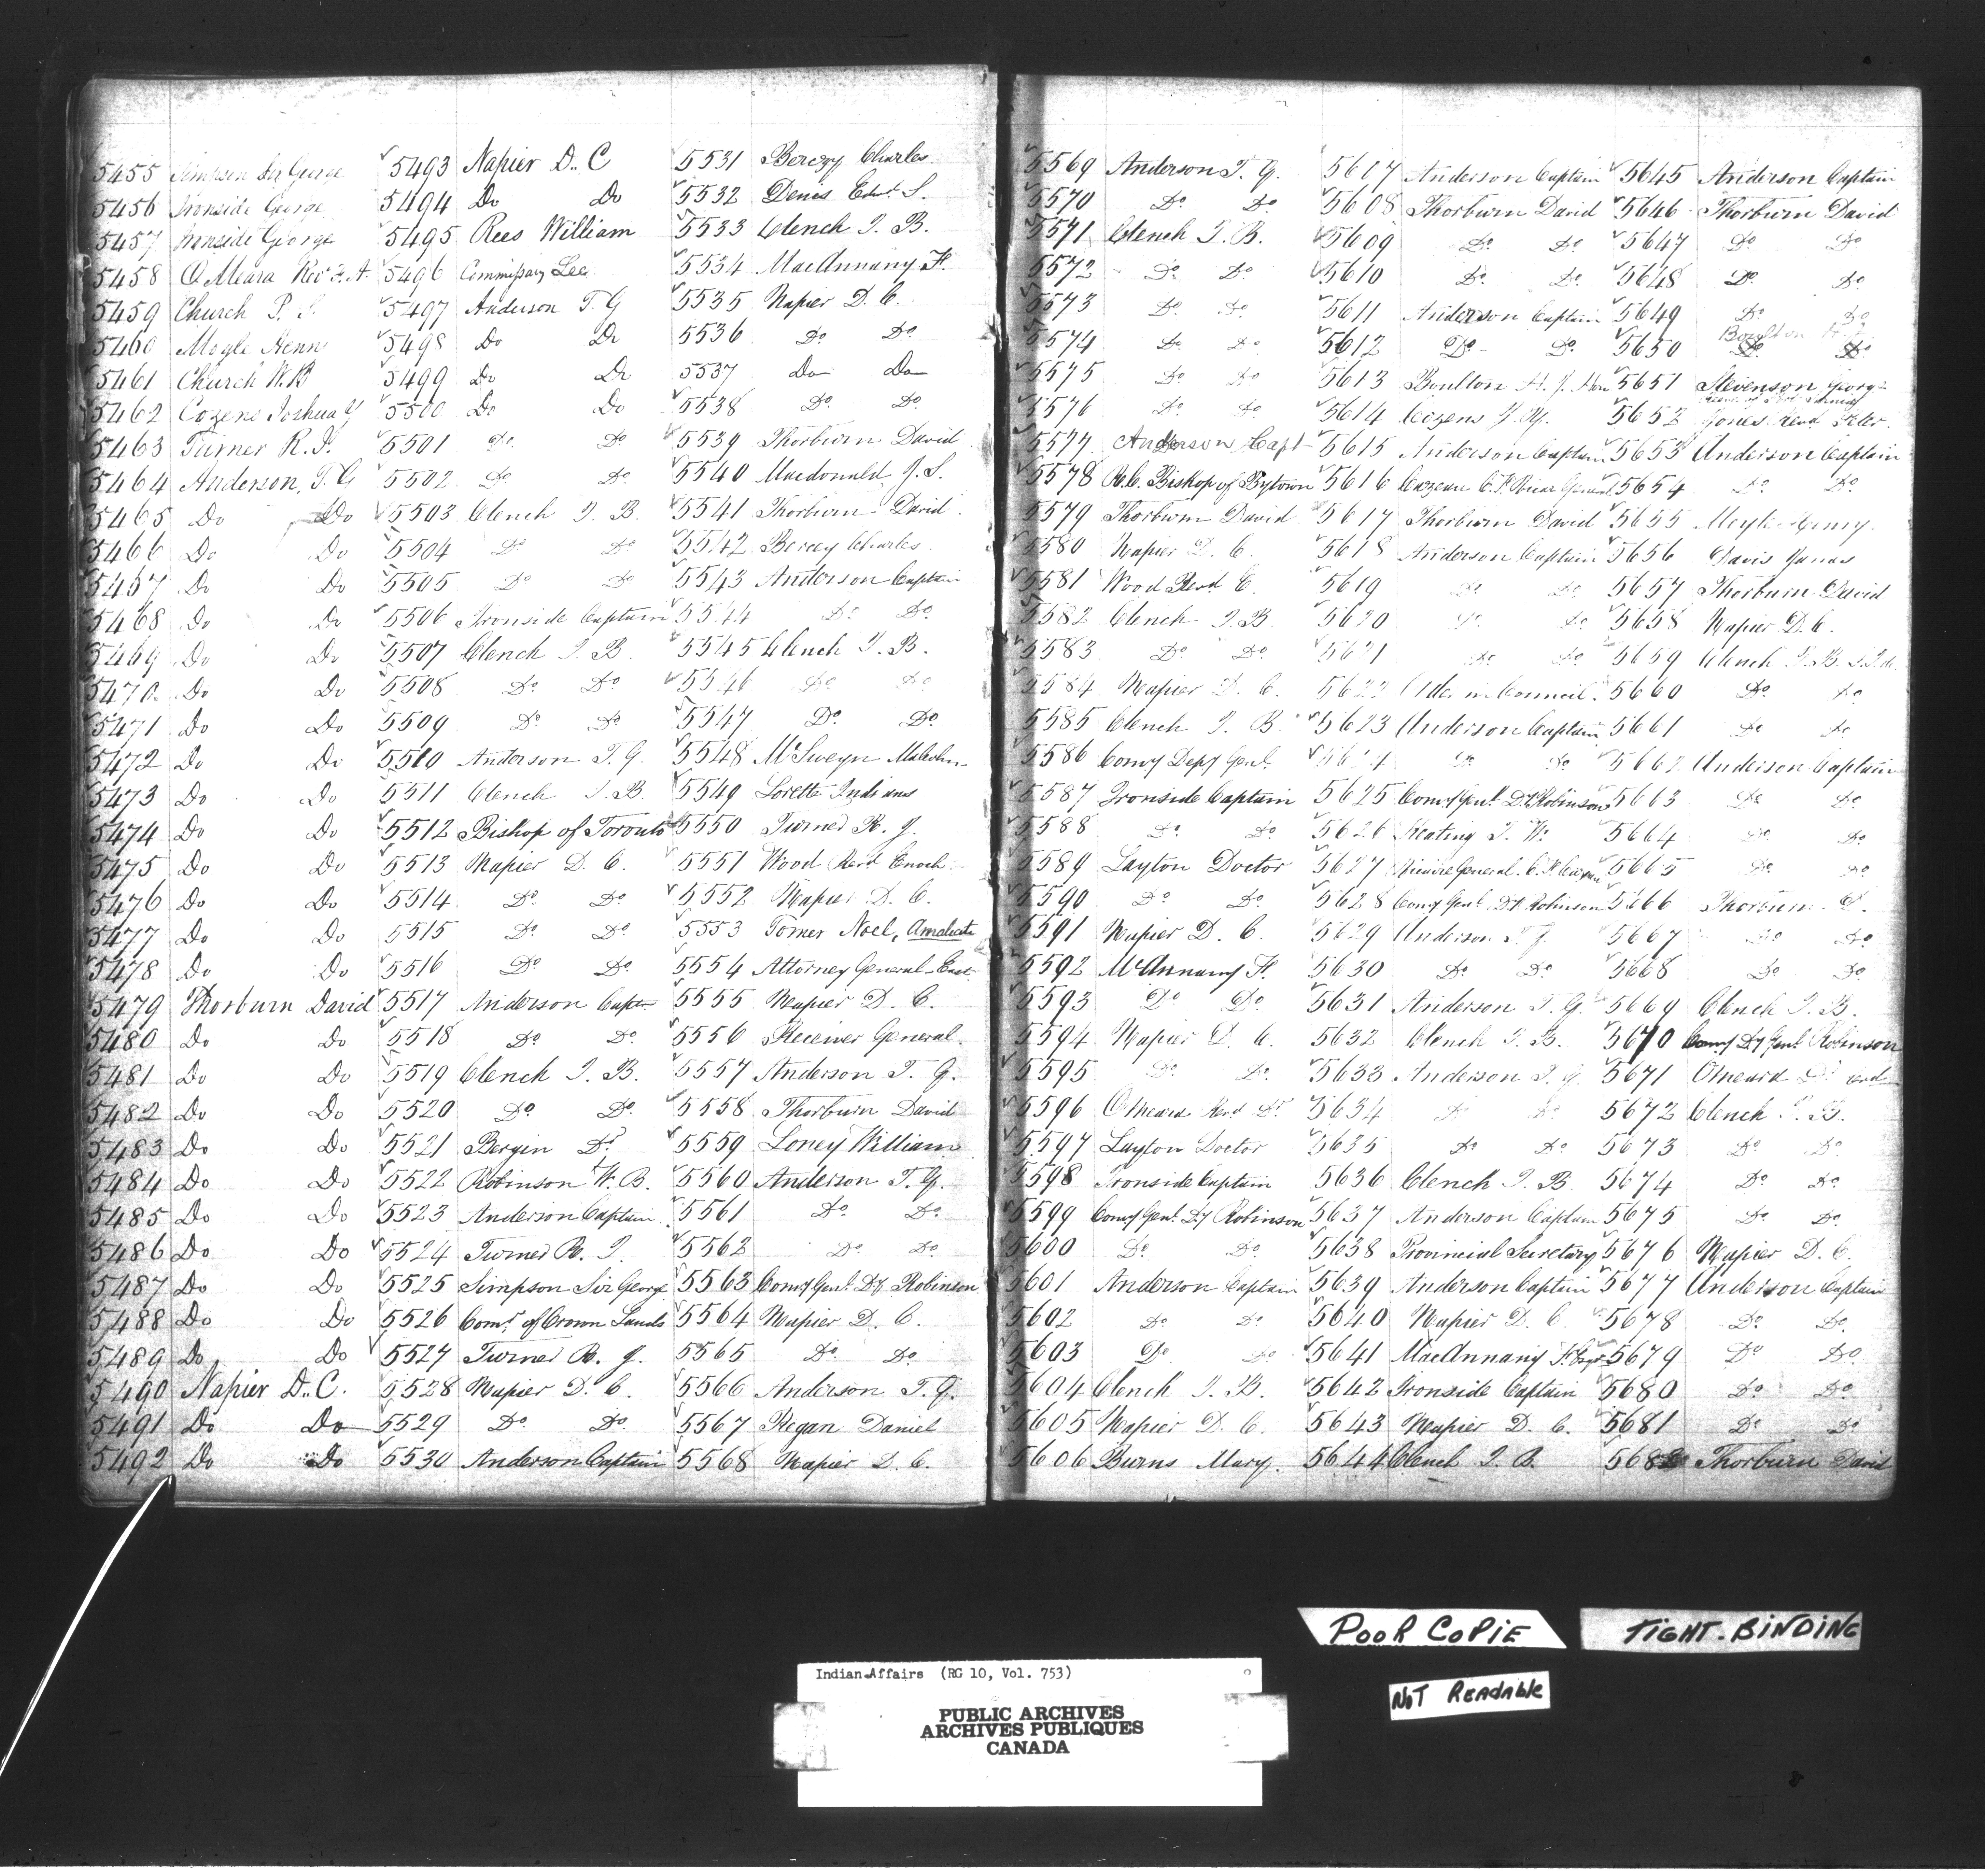 5455 Simpson Sir George
5456 Ironside George
5457 Ironside George
5458 O'Meara Revd F. A.
5459 Church P.
5460 Mogle Henry
5461 Church W. B
5462 Cozens Joshua Y
5463 Turner R. J.
5464 Anderson, T. G
5465 Do Do
5466 Do Do
5467 Do Do
5468 Do Do
5469 Do Do
5470 Do Do
5471 Do Do
5472 Do Do
5473 Do Do
5474 Do Do
5475 Do Do
5476 Do Do
5477 Do Do
5478 Do Do
5479 Thorburn David
5480 Do Do
5481 Do Do
5482 Do Do
5483 Do Do
5484 Do Do
5485 Do Do
5486 Do Do
5487 Do Do
5488 Do Do
5489 Do Do
5490 Napier D.. C.
5491 Do Do
5492 Do Do
5493 Napier D.. C
5494 Do Do
5495 Rees William
5496 Commissary Lee
5497 Anderson T. G
5498 Do Do
5499 Do Do
5500 Do Do
5501 Do Do
5502 Do Do
5503 Clench J. B.
5504 Do Do
5505 Do Do
5506 Ironside Captain
5507 Clench J. B.
5508 Do Do
5509 Do Do
5510 Anderson T. G.
5511 Clench J. B.
5512 Bishop of Toronto
5513 Napier D. C.
5514 Do Do
5515 Do Do
5516 Do Do
5517 Anderson Capt
5518 Do Do
5519 Clench J. B.
5520 Do Do
5521 Bergin Dr
5522 Robinson W. B.
5523 Anderson Captain
5524 Turner R. J.
5525 Simpson Sir George
5526 Comr of Crown Lands
5527 Turner R. J.
5528 Napier D. C.
5529 Do Do
5530 Anderson Captain
5531 Berczy Charles
5532 Denis Edwd S.
5533 Clench J. B.
5534 MacAnnany F.
5535 Napier D. C.
5536 Do Do
5537 Do Do
5538 Do Do
5539 Thorburn David
5540 Macdonald J. S.
5541 Thorburn David
5542 Berczy Charles
5543 Anderson Captain
5544 Do Do
5545 Clench J. B.
5546 Do Do
5547 Do Do
5548 McSweyn Malcolm
5549 Lorette Indians
5550 Turner R. J.
5551 Wood Revd Enoch
5552 Napier D. C.
5553 Tomer Noel, Amalicite
5554 Attorney General-East
5555 Napier D. C.
5556 Receiver General
5557 Anderson T. G.
5558 Thorburn David
5559 Loney William
5560 Anderson T. G.
5561 Do Do
5562 Do Do
5563 Comy Genl Dy Robinson
5564 Napier D. C.
5565 Do Do
5566 Anderson T. G.
5567 Regan Daniel
5568 Napier D. C.
5569 Anderson T. G.
5570 Do Do
5571 Clench J. B.
5572 Do Do
5573 Do Do
5574 Do Do
5575 Do Do
5576 Do Do
5577 Anderson Capt
5578 R. C. Bishop of Bytown
5579 Thorburn David
5580 Napier D. C.
5581 Wood Revd E.
5582 Clench J. B.
5583 Do Do
5584 Napier D. C.
5585 Clench J. B
5586 Comy Depy Genl
5587 Ironside Captain
5588 Do Do
5589 Layton Doctor
5590 Do Do
5591 Napier D. C.
5592 McAnnany F.
5593 Do Do
5594 Napier D. C.
5595 Do Do
5596 Omeara Revd Dr
5597 Layton Doctor
5598 Ironside Captain
5599 Comy Genl Dy Robinson
5600 Do Do
5601 Anderson Captain
5602 Do Do
5603 Do Do
5604 Clench J. B.
5605 Napier D. C.
5606 Burns Mary.
5607 Anderson Captain
5608 Thorburn David
5609 Do Do
5610 Do Do
5611 Anderson Captain
5612 Do Do
5613 Boulton H. J. Hon
5614 Cozens J. Y.
5615 Anderson Captain
5616 Cazeau C. F. Vicar General
5617 Thorburn David
5618 Anderson Captain
5619 Do Do
5620 Do Do
5621 Do Do
5622 Order in Council
5623 Anderson Captain
5624 Do Do
5625 Comy Genl Dy Robinson
5626 Keating J. W.
5627 General C. F. Cazeau
5628 Comy Genl Dy Robinson
5629 Anderson T. G.
5630 Do Do
5631 Anderson T. G.
5632 Clench J. B.
5633 Anderson T. G.
5634 Do Do
5635 Do Do
5636 Clench J. B.
5637 Anderson Captain
5638 Provincial Secretary
5639 Anderson Captain
5640 Napier D. C.
5641 MacAnnany F.
5642 Ironside Captain
5643 Napier D. C.
5644 Clench J. B.
5645 Anderson Captain
5646 Thorburn David
5647 Do Do
5648 Do Do
5649 Do Do
5650 Boulton H. J.
5651 Stevenson George
5652 Jones Revd Peter
5653 Anderson Captain
5654 Do Do
5655 Moyle Henry.
5656 Davis James
5657 Thorburn David
5658 Napier D. C.
5659 Clench J. B.
5660 Do Do
5661 Do Do
5662 Anderson Captain
5663 Do Do
5664 Do Do
5665 Do Do
5666 Thorburn D.
5667 Do Do
5668 Do Do
5669 Clench J. B.
5670 Comy Dy Genl Robinson
5671 Omeara Dr
5672 Clench J. B.
5673 Do Do
5674 Do Do
5675 Do Do
5676 Napier D. C.
5677 Anderson Captain
5678 Do Do
5679 Do Do
5680 Do Do
5681 Do Do
5682 Thorburn David
POOR COPIE
TIGHT. BINDING
NOT READABLE
Indian Affairs (RG 10, Vol. 753)
PUBLIC ARCHIVES
ARCHIVES PUBLIQUES
CANADA